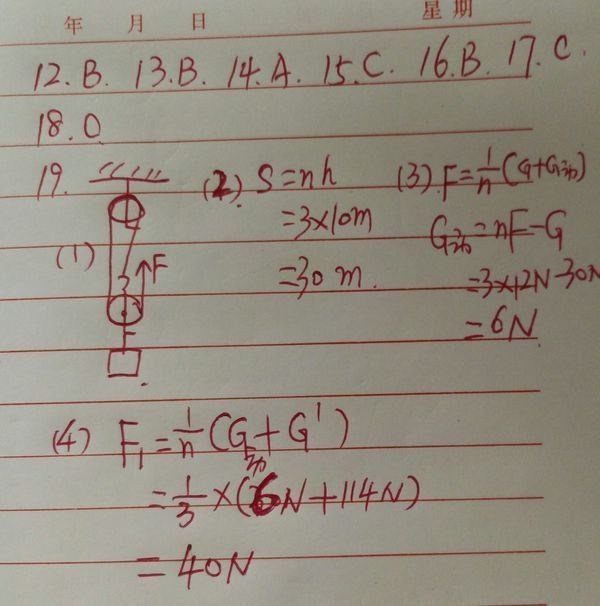 年 月 日 星期
12.B. 13.B. 14.A. 15.C. 16.B. 17.C.
18.D
19.
(1)
F
(2) S=nh
=3×10m
=30m.
(3) F=1/n(G+G动)
G动=nF-G
=3×12N-30N
=6N
(4) F₁=1/n(G动+G')
=1/3×(6N+114N)
=40N